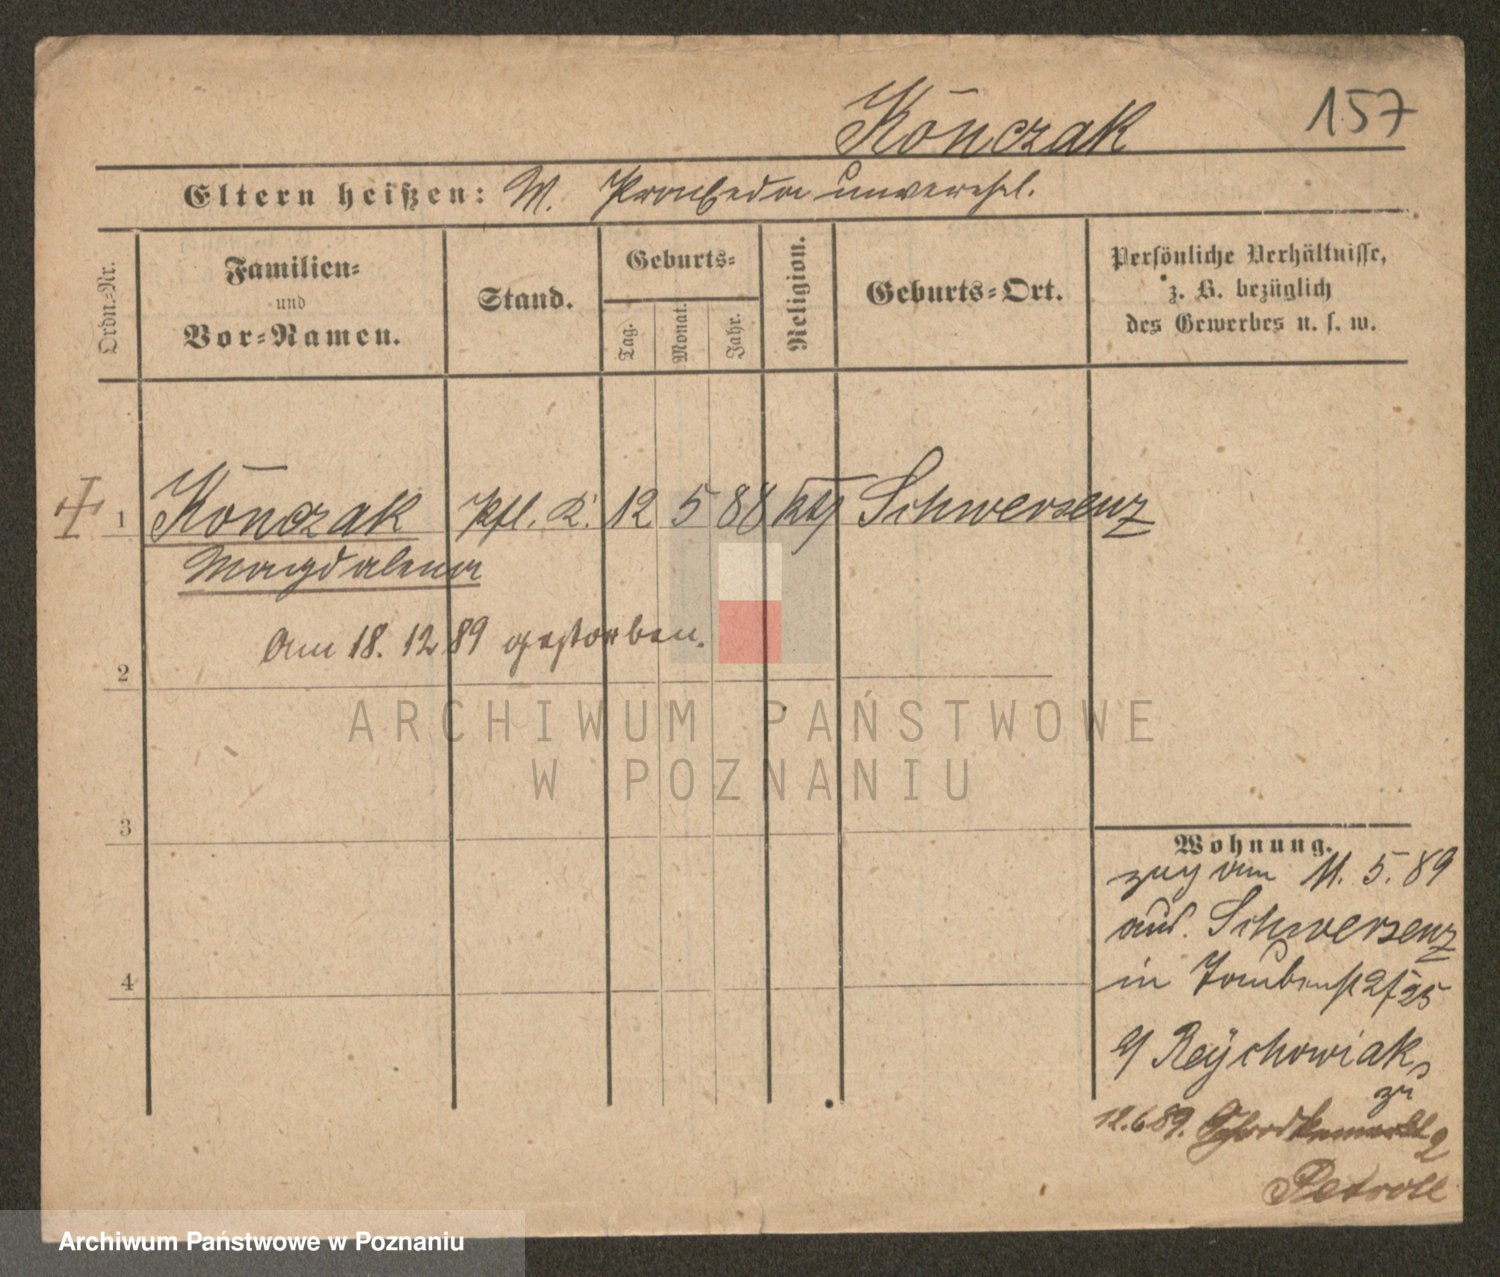 Kończak
157
Eltern heißen: M. Praxeda unverehl.
Ordn.-Nr.
Familien-
und
Vor-Namen.
Stand.
Geburts-
Tag.
Monat.
Jahr.
Religion.
Geburts-Ort.
Persönliche Verhältnisse,
z. B. bezüglich
des Gewerbes u. s. w.
1 Kończak Pfl. K. 12 5 88 kth Schwersenz
Magdalena
Am 18. 12 89 gestorben.
2
ARCHIWUM PAŃSTWOWE
W POZNANIU
3
4
Wohnung.
zug am 11. 5. 89
aus Schwersenz
in Taubenst 2/25
Reÿchowiak
zu
12.6 89. 2
Archiwum Państwowe w Poznaniu